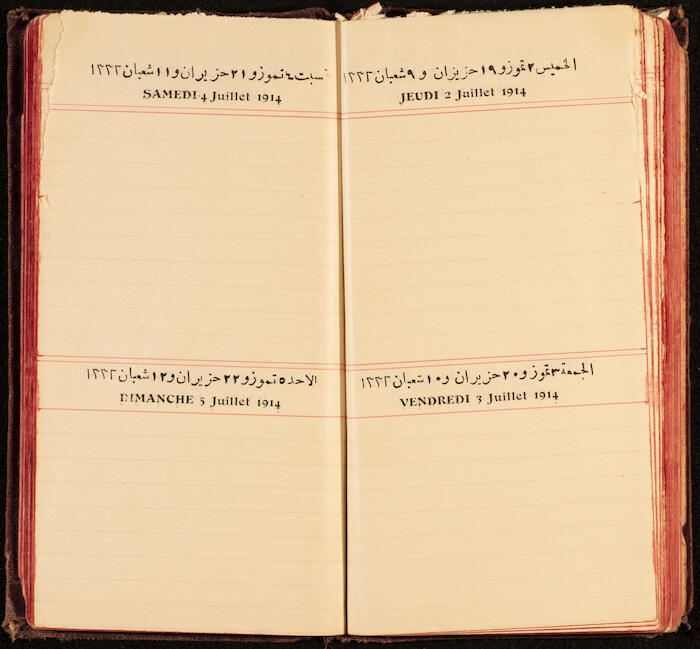 الخميس ٢ تموز و ١٩ حزيران و ٩ شعبان ١٣٣٢
JEUDI 2 Juillet 1914
الجمعة ٣ تموز و ٢٠ حزيران و ١٠ شعبان ١٣٣٢
VENDREDI 3 Juillet 1914
لسبت ٤ تموز و ٢١ حزيران و ١١ شعبان ١٣٣٢
SAMEDI 4 Juillet 1914
الاحد ٥ تموز و ٢٢ حزيران و ١٢ شعبان ١٣٣٢
DIMANCHE 5 Juillet 1914